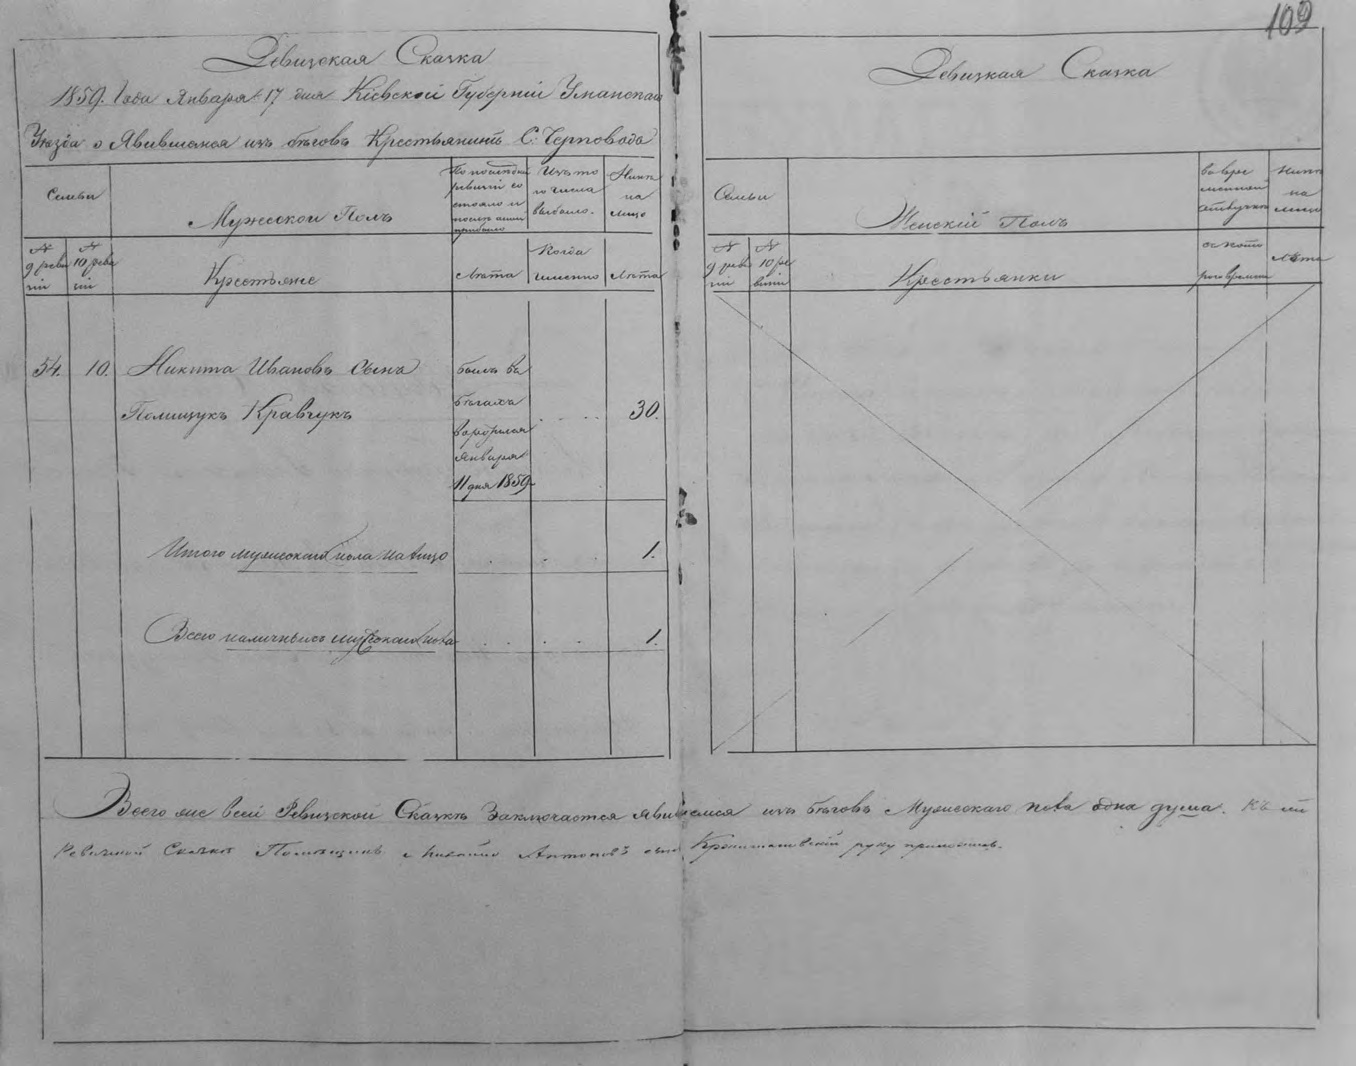 109
Ревизская Сказка
1859. Года Января 17 дня Кіевской Губерніи Уманскаго
Уезда о Явившемся изъ беговъ Крестьянинъ С. Черповода
Семьи
Мужескои Полъ
По последней
ревизіи со
стояло и
после оной
прибыло
Изъ то
го числа
выбыло.
Ныне
на
лицо
№
9 реви
зіи
№
10 реви
зіи
Крестьяне
Лета
Когда
именно
Лета
54. 10. Никита Ивановъ сынъ
Полищукъ Кравчукъ
былъ въ
бегахъ
Января
11 дня 1859
30.
Итого мужескаго пола на лицо 1.
Всего наличныхъ мужскаго пола 1.
Ревизкая Сказка
Семьи
Женскій Полъ
во вре
менной
отлучке
Ныне
на
лицо
№
9 реви
зіи
№
10 ре
визіи
Крестьянки
съ кото
раго времени
Лета
Всего же всей Ревизской Сказке Заключается явившемся изъ беговъ Мужескаго пола одна душа. Къ сей
Ревизской Сказке Помещикъ Антоновъ сынъ руку приложилъ.